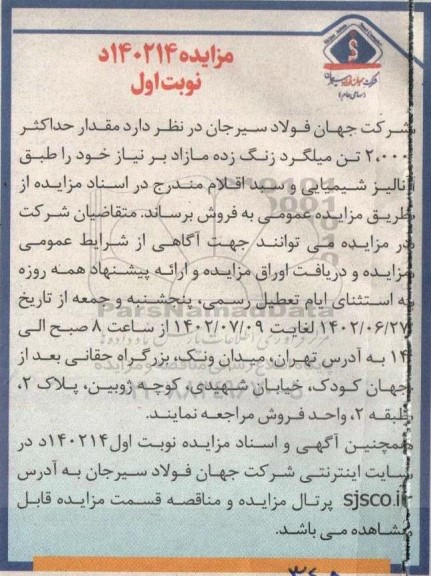 مزایده ۱۴۰۲۱۴د
نوبت اول
شرکت جهان فولاد سیرجان
(سهامی عام)
شرکت جهان فولاد سیرجان در نظر دارد مقدار حداکثر
۲،۰۰۰ تن میلگرد زنگ زده مازاد بر نیاز خود را طبق
آنالیز شیمیایی و سبد اقلام مندرج در اسناد مزایده از
طریق مزایده عمومی به فروش برساند. متقاضیان شرکت
در مزایده می توانند جهت آگاهی از شرایط عمومی
مزایده و دریافت اوراق مزایده و ارائه پیشنهاد همه روزه
به استثنای ایام تعطیل رسمی، پنجشنبه و جمعه از تاریخ
۱۴۰۲/۰۶/۲۷ لغایت ۱۴۰۲/۰۷/۰۹ از ساعت ۸ صبح الی
۱۴ به آدرس تهران، میدان ونک، بزرگراه حقانی بعد از
جهان کودک، خیابان شهیدی، کوچه ژوبین، پلاک ۲،
طبقه ۲، واحد فروش مراجعه نمایند.
همچنین آگهی و اسناد مزایده نوبت اول ۱۴۰۲۱۴د در
سایت اینترنتی شرکت جهان فولاد سیرجان به آدرس
sjsco.ir پرتال مزایده و مناقصه قسمت مزایده قابل
مشاهده می باشد.
ParsNamadData